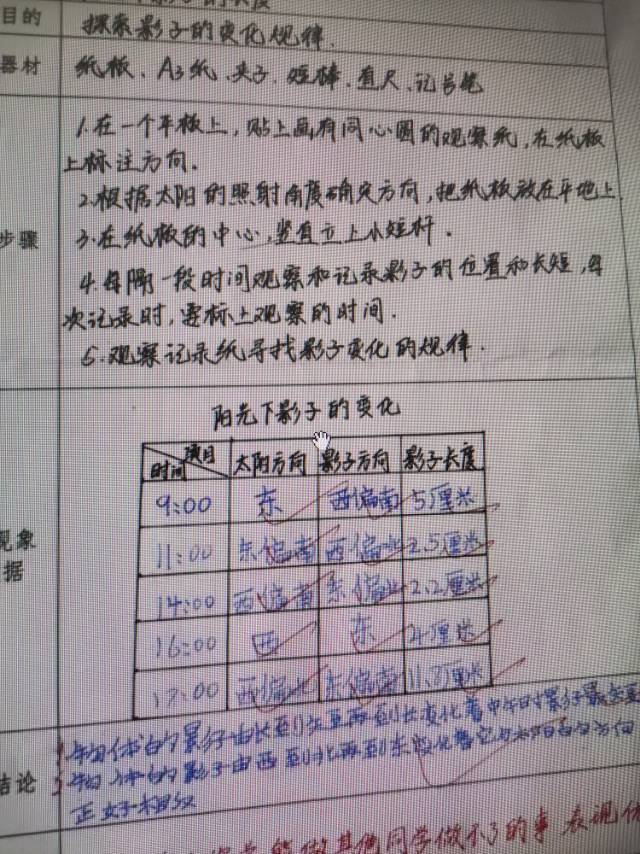 目的 探索影子的变化规律.
器材 纸板、A3纸、夹子、短棒、直尺、记号笔
步骤
1.在一个平板上,贴上画有同心圆的观察纸,在纸板
上标注方向.
2.根据太阳的照射角度确定方向,把纸板放在平地上
3.在纸板的中心,竖直立上小短杆.
4.每隔一段时间观察和记录影子的位置和长短,每
次记录时,要标上观察的时间.
5.观察记录纸寻找影子变化的规律.
现象
据
阳光下影子的变化
项目 时间 太阳方向 影子方向 影子长度
9:00 东 西偏南 5厘米
11:00 东偏南 西偏北 2.5厘米
14:00 西偏南 东偏北 2.2厘米
16:00 西 东 4厘米
17:00 西偏北 东偏南 11.7厘米
结论
物体的影子由长到短再到长变化着中午时影子最
物体的影子由西到北再到东变化着它与太阳的方向
正好相反
能做其他同学做不了的事 表现